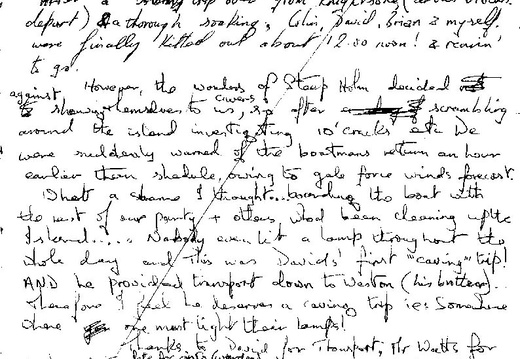 After a strong trip over from Knightstone (across
depart) & a thorough soaking, Colin, David, Brian & myself,
were finally kitted out about 12.00 noon! & ravin
to go.
However, the wonders of Steep Holm decided
against showing themselves to us, so after scrambling
caves
around the island investigating 10' cracks etc. We
were suddenly warned of the boatmans return an hour
earlier than shedule, owing to gale force winds forecast.
What a shame I thought... boarding the boat with
the rest of our party + others, whod been cleaning up the
Island..... Nobody even lit a lamp throughout the
whole day and this was Davids' first "caving" trip!
AND he provided transport down to Weston (his
Therefore I feel he deserves a caving trip ie: Somewhere
where one must light their lamps!
Thanks to David for Transport, Mr Watts for